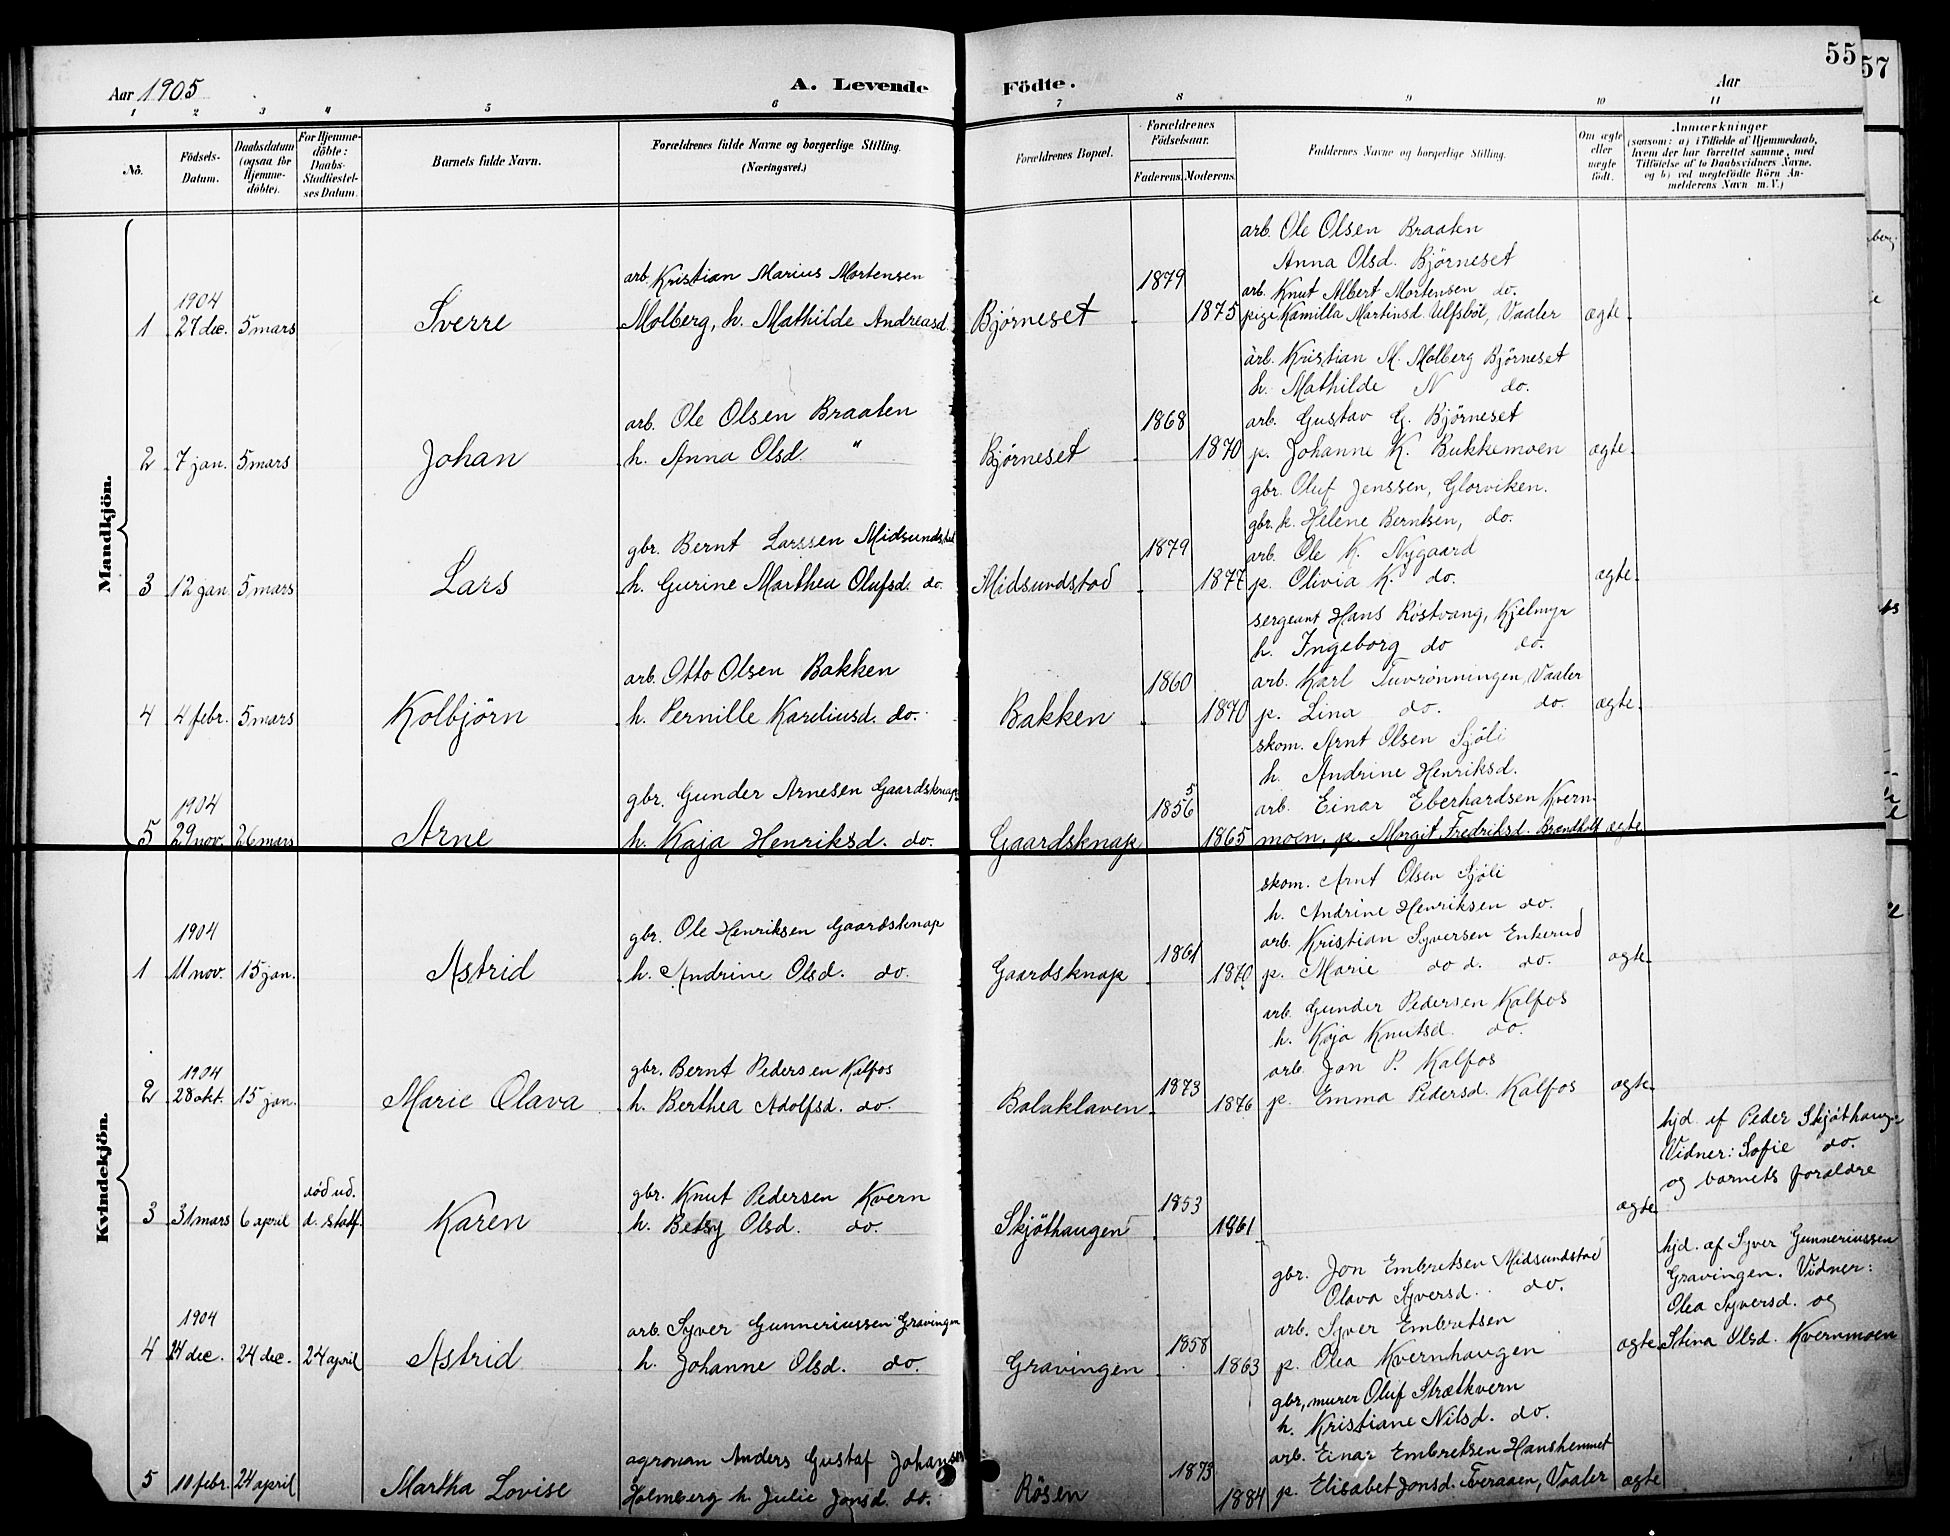 55
57
Aar 1905
A. Levende Födte.
Aar
1 2 3 4 5 6 7 8 9 10 11
Nö.
Födsels-
Datum.
Daabsdatum
(ogsaa for
Hjemme-
döbte).
For Hjemme-
döbte:
Daabs-
Stadfæstel-
ses Datum.
Barnets fulde Navn.
Forældrenes fulde Navne og borgerlige Stilling.
(Næringsvei.)
Forældrenes Bopæl.
Forældrenes
Födselsaar.
Faderens. Moderens.
Faddernes Navne og borgerlige Stilling.
Om ægte
eller
uægte
födt.
Anmærkninger
(saasom: a) i Tilfælde af Hjemmedaab,
hvem der har forrettet samme, med
Tilföielse af to Daabsvidners Navne,
og b) ved uægtefödte Börn An-
melderens Navn m. V.)
Mandkjön.
1
1904
27 dec.
5 mars
Sverre
arb. Kristian Marius Mortensen
Molberg, h. Mathilde Andreasd.
Björneset
1879
1875
arb. Ole Olsen Braaten
Anna Olsd. Björneset
arb. Knut Albert Mortensen do.
pige Kamilla Martinsd. Ulfsböl, Vaaler
ægte.
2
7 jan.
5 mars
Johan
arb. Ole Olsen Braaten
h. Anna Olsd. "
Björneset
1868
1870
arb. Kristian M. Molberg Björneset
h. Mathilde N do.
arb. Gustav G. Björneset
p. Johanne K. Bukkemoen
ægte.
3
12 jan
5 mars
Lars
gbr. Bernt Larssen Midsundstad
h. Gurine Marthea Olufsd. do.
Midsundstad
1879
1877
gbr. Oluf Jenssen, Glorviken.
gbr. k. Helene Berntsen, do.
arb. Ole K. Nygaard
p. Olivia K. do.
ægte.
4
4 febr.
5 mars
Kolbjörn
arb. Otto Olsen Bakken
h. Pernille Kareliusd. do.
Bakken
1860
1870
sergeant Hans Röstvang, Kjelmyr
h. Ingeborg do do.
arb. Karl Tuvrønningen, Vaaler
p. Lina do. do.
ægte.
5
1904
29 nov.
26 mars
Arne
gbr. Gunder Arnesen Gaardsknap
h. Kaja Henriksd. do.
Gaardsknap
5
1856
1865
skom. Arnt Olsen Sjöli
h. Andrine Henriksd.
arb. Einar Eberhardsen Kvern-
moen, p. Margit Fredriksd. Brændholt
ægte
Kvindekjön.
1
1904
11 nov.
15 jan.
Astrid
gbr. Ole Henriksen Gaardsknap
h. Andrine Olsd. do.
Gaardsknap
1861
1870
skom. Arnt Olsen Sjöli
h. Andrine Henriksen do.
arb. Kristian Syversen Enkerud
p. Marie do d. do.
ægte
2
1904
28 okt.
15 jan.
Marie Olava
gbr. Bernt Pedersen Kalfos
h. Berthea Adolfsd. do.
Balaklaven
1873
1876
arb. Gunder Pedersen Kalfos
h. Kaja Knutsd. do.
arb. Jon P. Kalfos
p. Emma Pedersd. Kalfos
ægte
3
31 mars
6 april
död ud.
d. stadf.
Karen
gbr. Knut Pedersen Kvern
h. Betsy Olsd. do.
Skjöthaugen
1853
1861
ægte
hjd. af Peder Skjöthaugen
Vidner: Sofie do.
og barnets forældre
4
1904
24 dec.
24 dec.
24 april
Astrid
arb. Syver Gunneriussen Gravingen
h. Johanne Olsd. do.
Gravingen
1858
1863
gbr. Jon Embretsen Midsundstad
Olava Syversd. do.
arb. Syver Embretsen
p. Olea Kvernhaugen
ægte
hjd. af Syver Gunneriussen
Gravingen. Vidner:
Olea Syversd. og
Stina Olsd. Kvernmoen
5
10 febr.
24 april
Martha Lovise
agronom Anders Gustaf Johansen
Holmberg h. Julie Jonsd. do.
Rösen
1873
1884
gbr., murer Oluf Strætkvern
h. Kristiane Nilsd. do.
arb. Einar Embretsen Hanshemmet
p. Elisabet Jonsd. Tveraaen, Vaaler
ægte